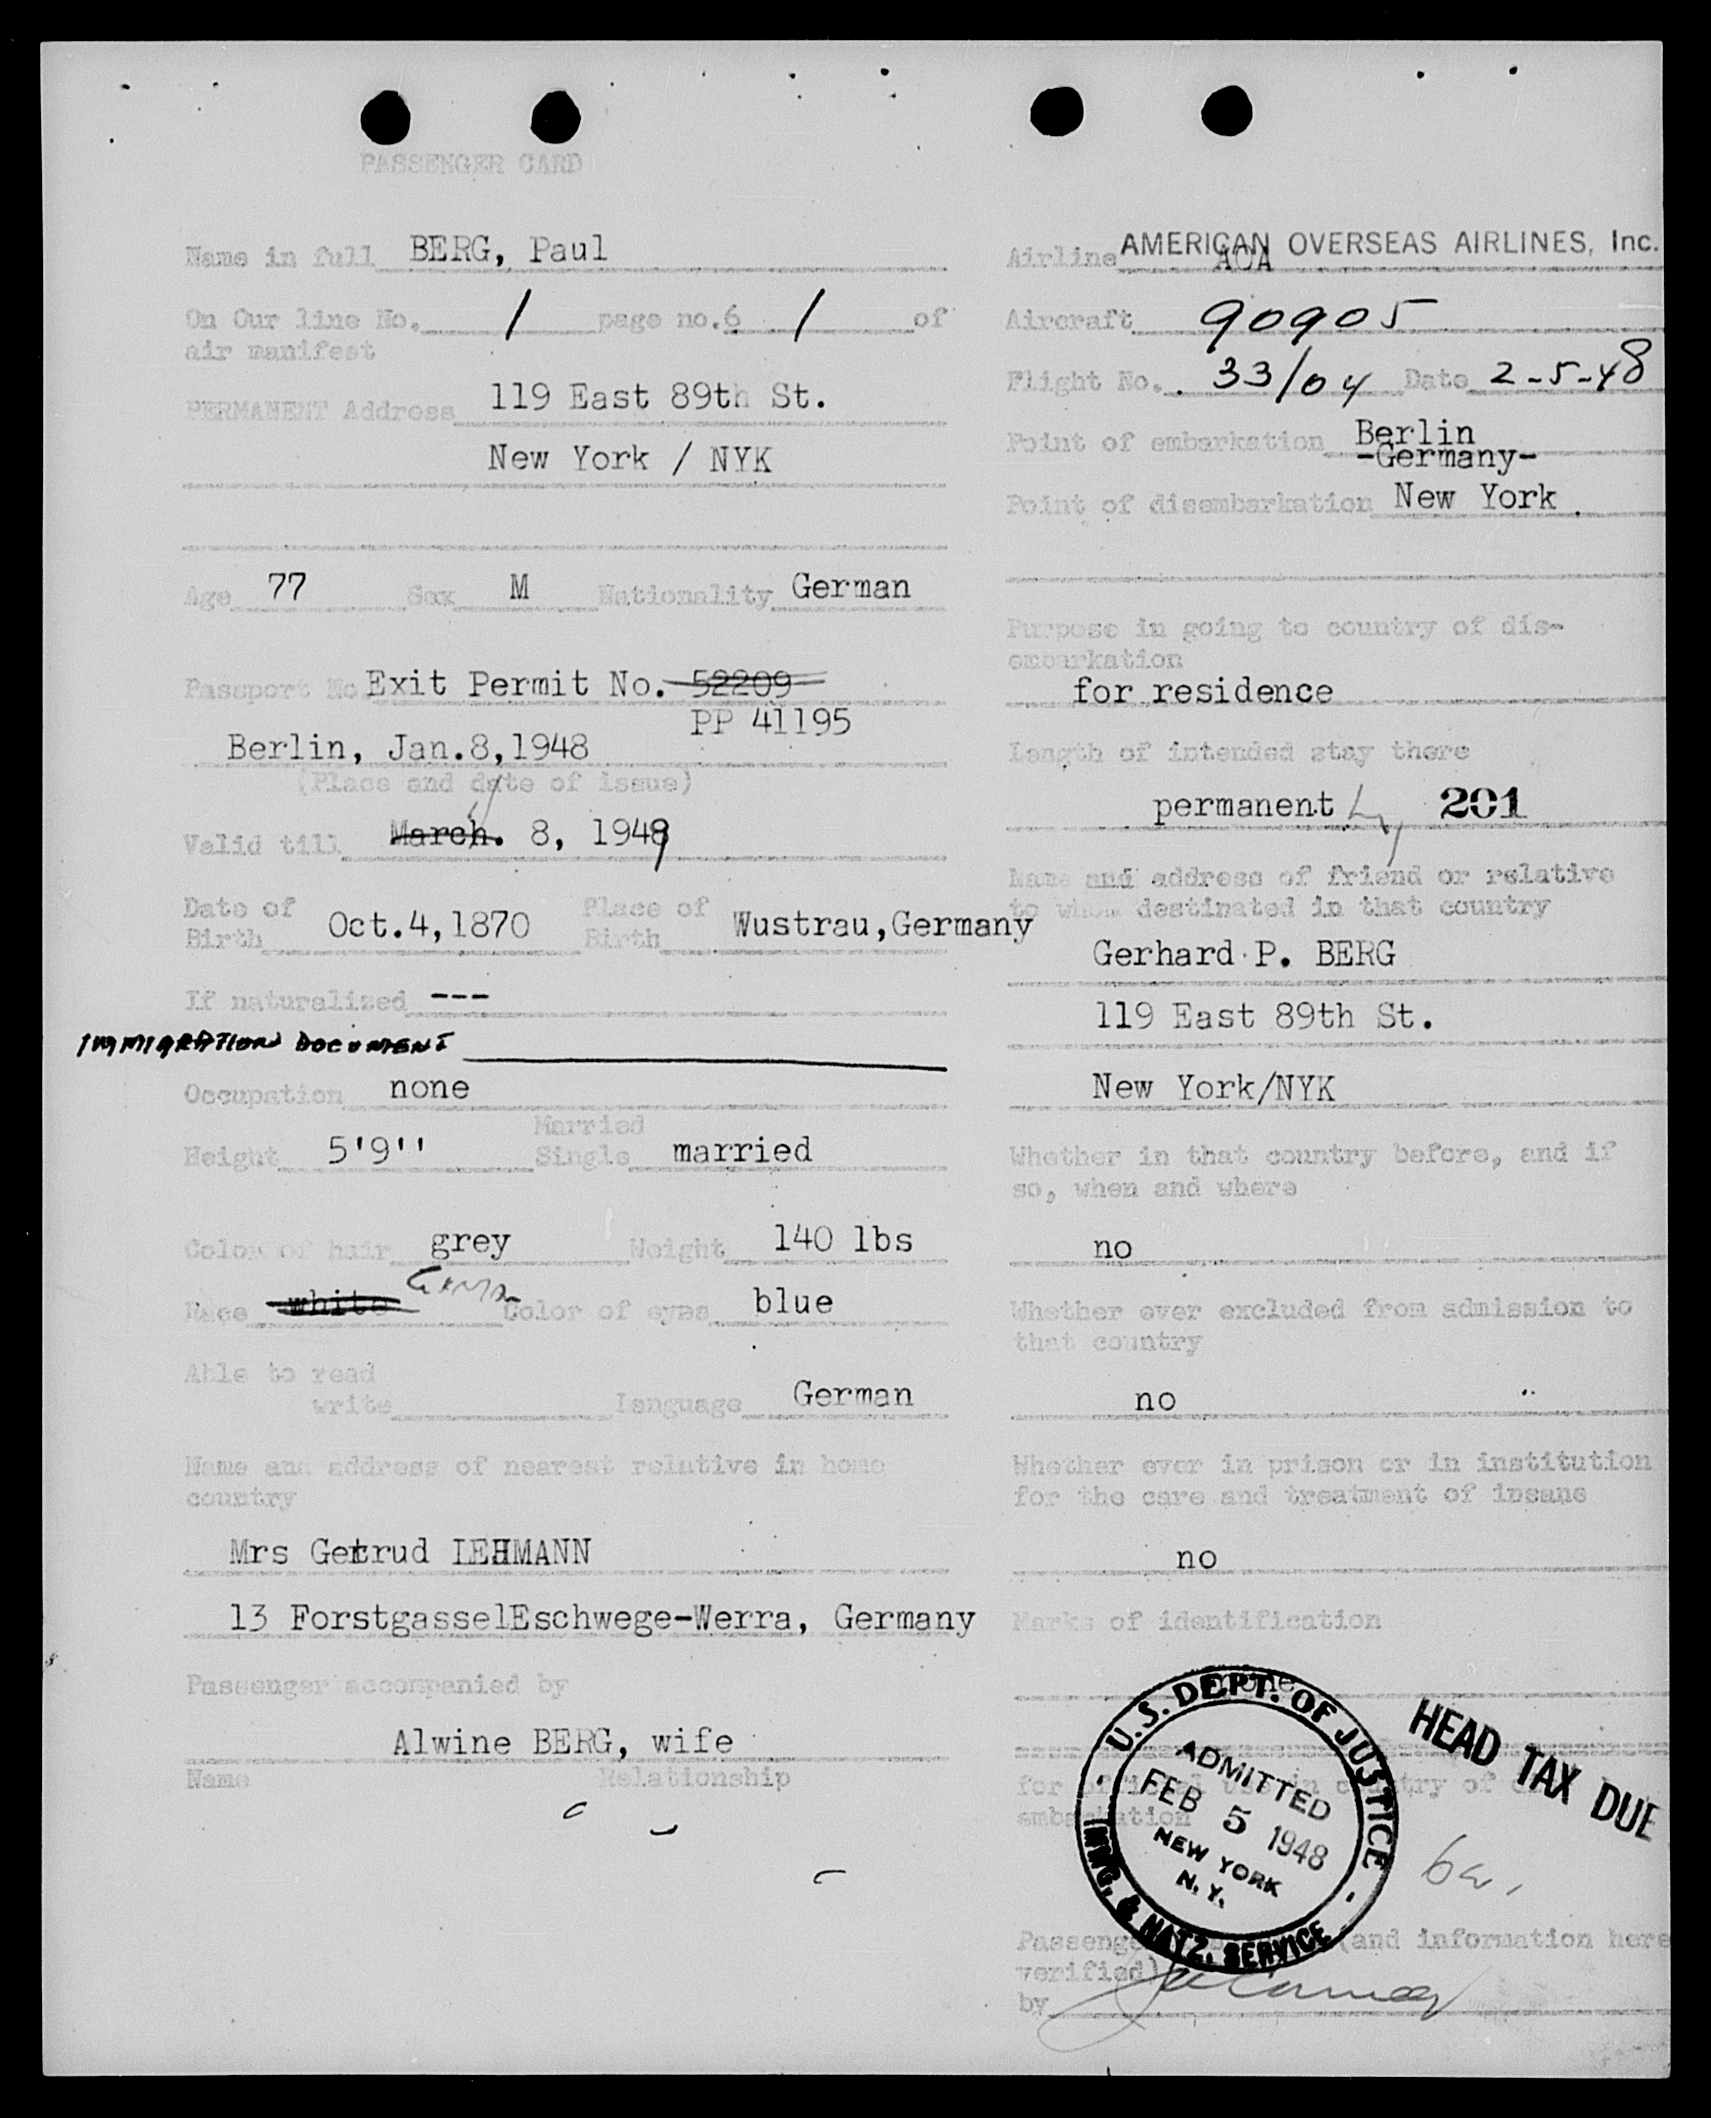 PASSENGER CARD
Name in full BERG, Paul
On Our line No. 1 page no.6 1 of
air manifest
PERMANENT Address 119 East 89th St.
New York / NYK
Age 77 Sex M Nationality German
Passport No Exit Permit No. 52209
PP 41195
Berlin, Jan.8,1948
(Place and date of issue)
Valid till March. 8, 1948
Date of
Birth Oct.4,1870 Place of
Birth Wustrau,Germany
If naturalized ---
IMMIGRATION DOCUMENT
Occupation none
Married
Height 5'9'' Single married
Color of hair grey Weight 140 lbs
Race white Color of eyes blue
Able to read
write language German
Name and address of nearest relative in home
country
Mrs Gertrud LEHMANN
13 ForstgasselEschwege-Werra, Germany
Passenger accompanied by
Alwine BERG, wife
Name Relationship
Airline AMERICAN OVERSEAS AIRLINES, Inc.
AOA
Aircraft 90905
Flight No. 33/04 Date 2-5-48
Point of embarkation Berlin
-Germany-
Point of disembarkation New York
Purpose in going to country of dis-
embarkation
for residence
Length of intended stay there
permanent 201
Name and address of friend or relative
to whom destinated in that country
Gerhard P. BERG
119 East 89th St.
New York/NYK
Whether in that country before, and if
so, when and where
no
Whether ever excluded from admission to
that country
no
Whether ever in prison or in institution
for the care and treatment of insane
no
Marks of identification
none
U.S. DEPT. OF JUSTICE
ADMITTED
FEB 5 1948
NEW YORK
N.Y.
IMMG. & NATZ. SERVICE
HEAD TAX DUE
for official use in country of
embarkation
Passenger (and information here
verified)
by